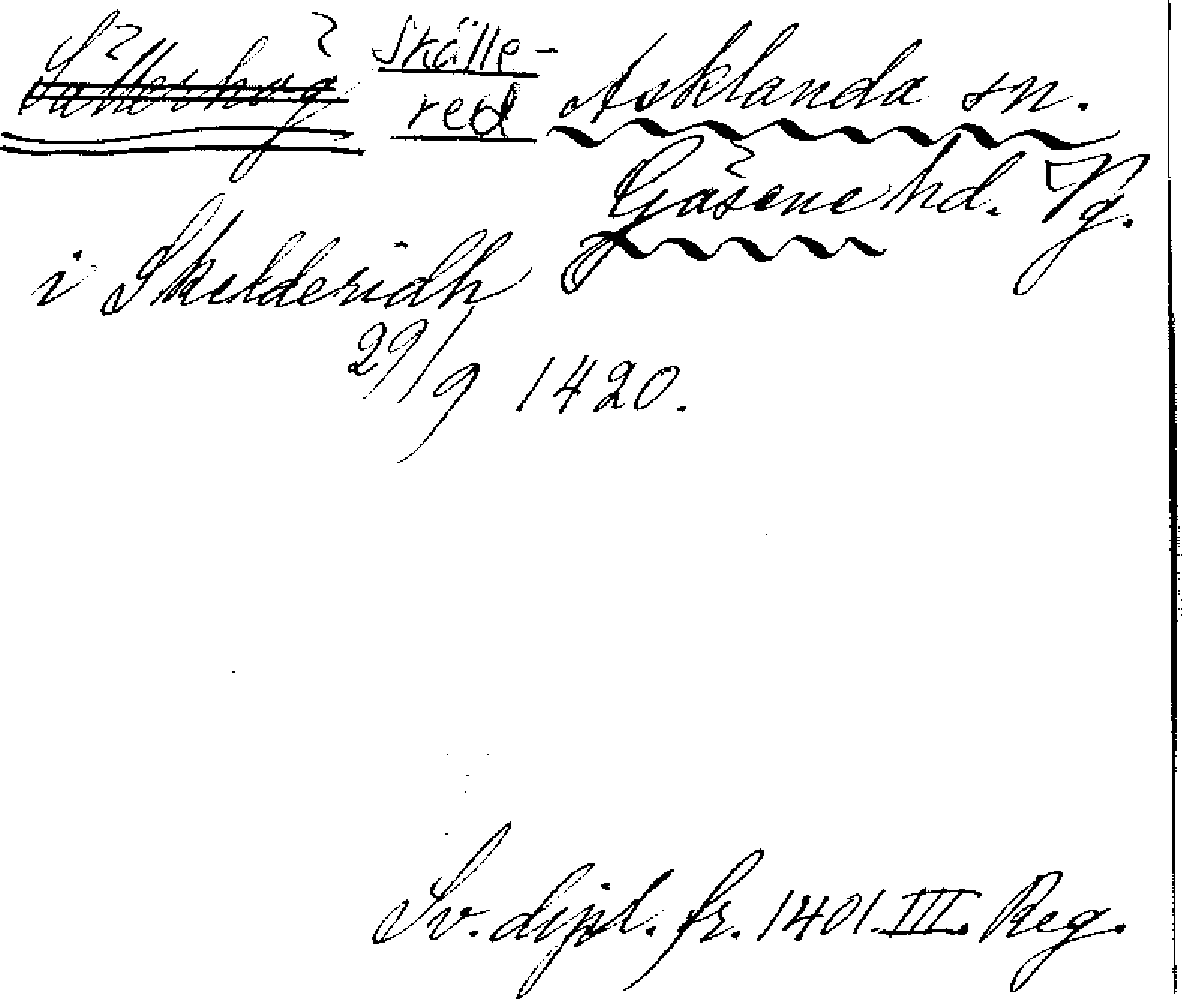 Sälleshög Skälle-
red Asklanda sn.
Gäsene hd. Vg.
i Skelderidh
29/9 1420.
Sv. dipl. fr. 1401. III. Reg.